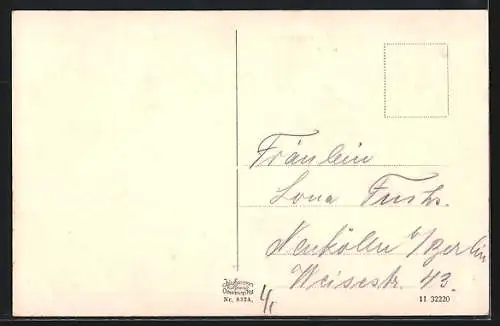 Fräulein
Lona Fuchs.
Neukölln b/Berlin
Weisestr. 43.
Nr. 8323.
11 32220